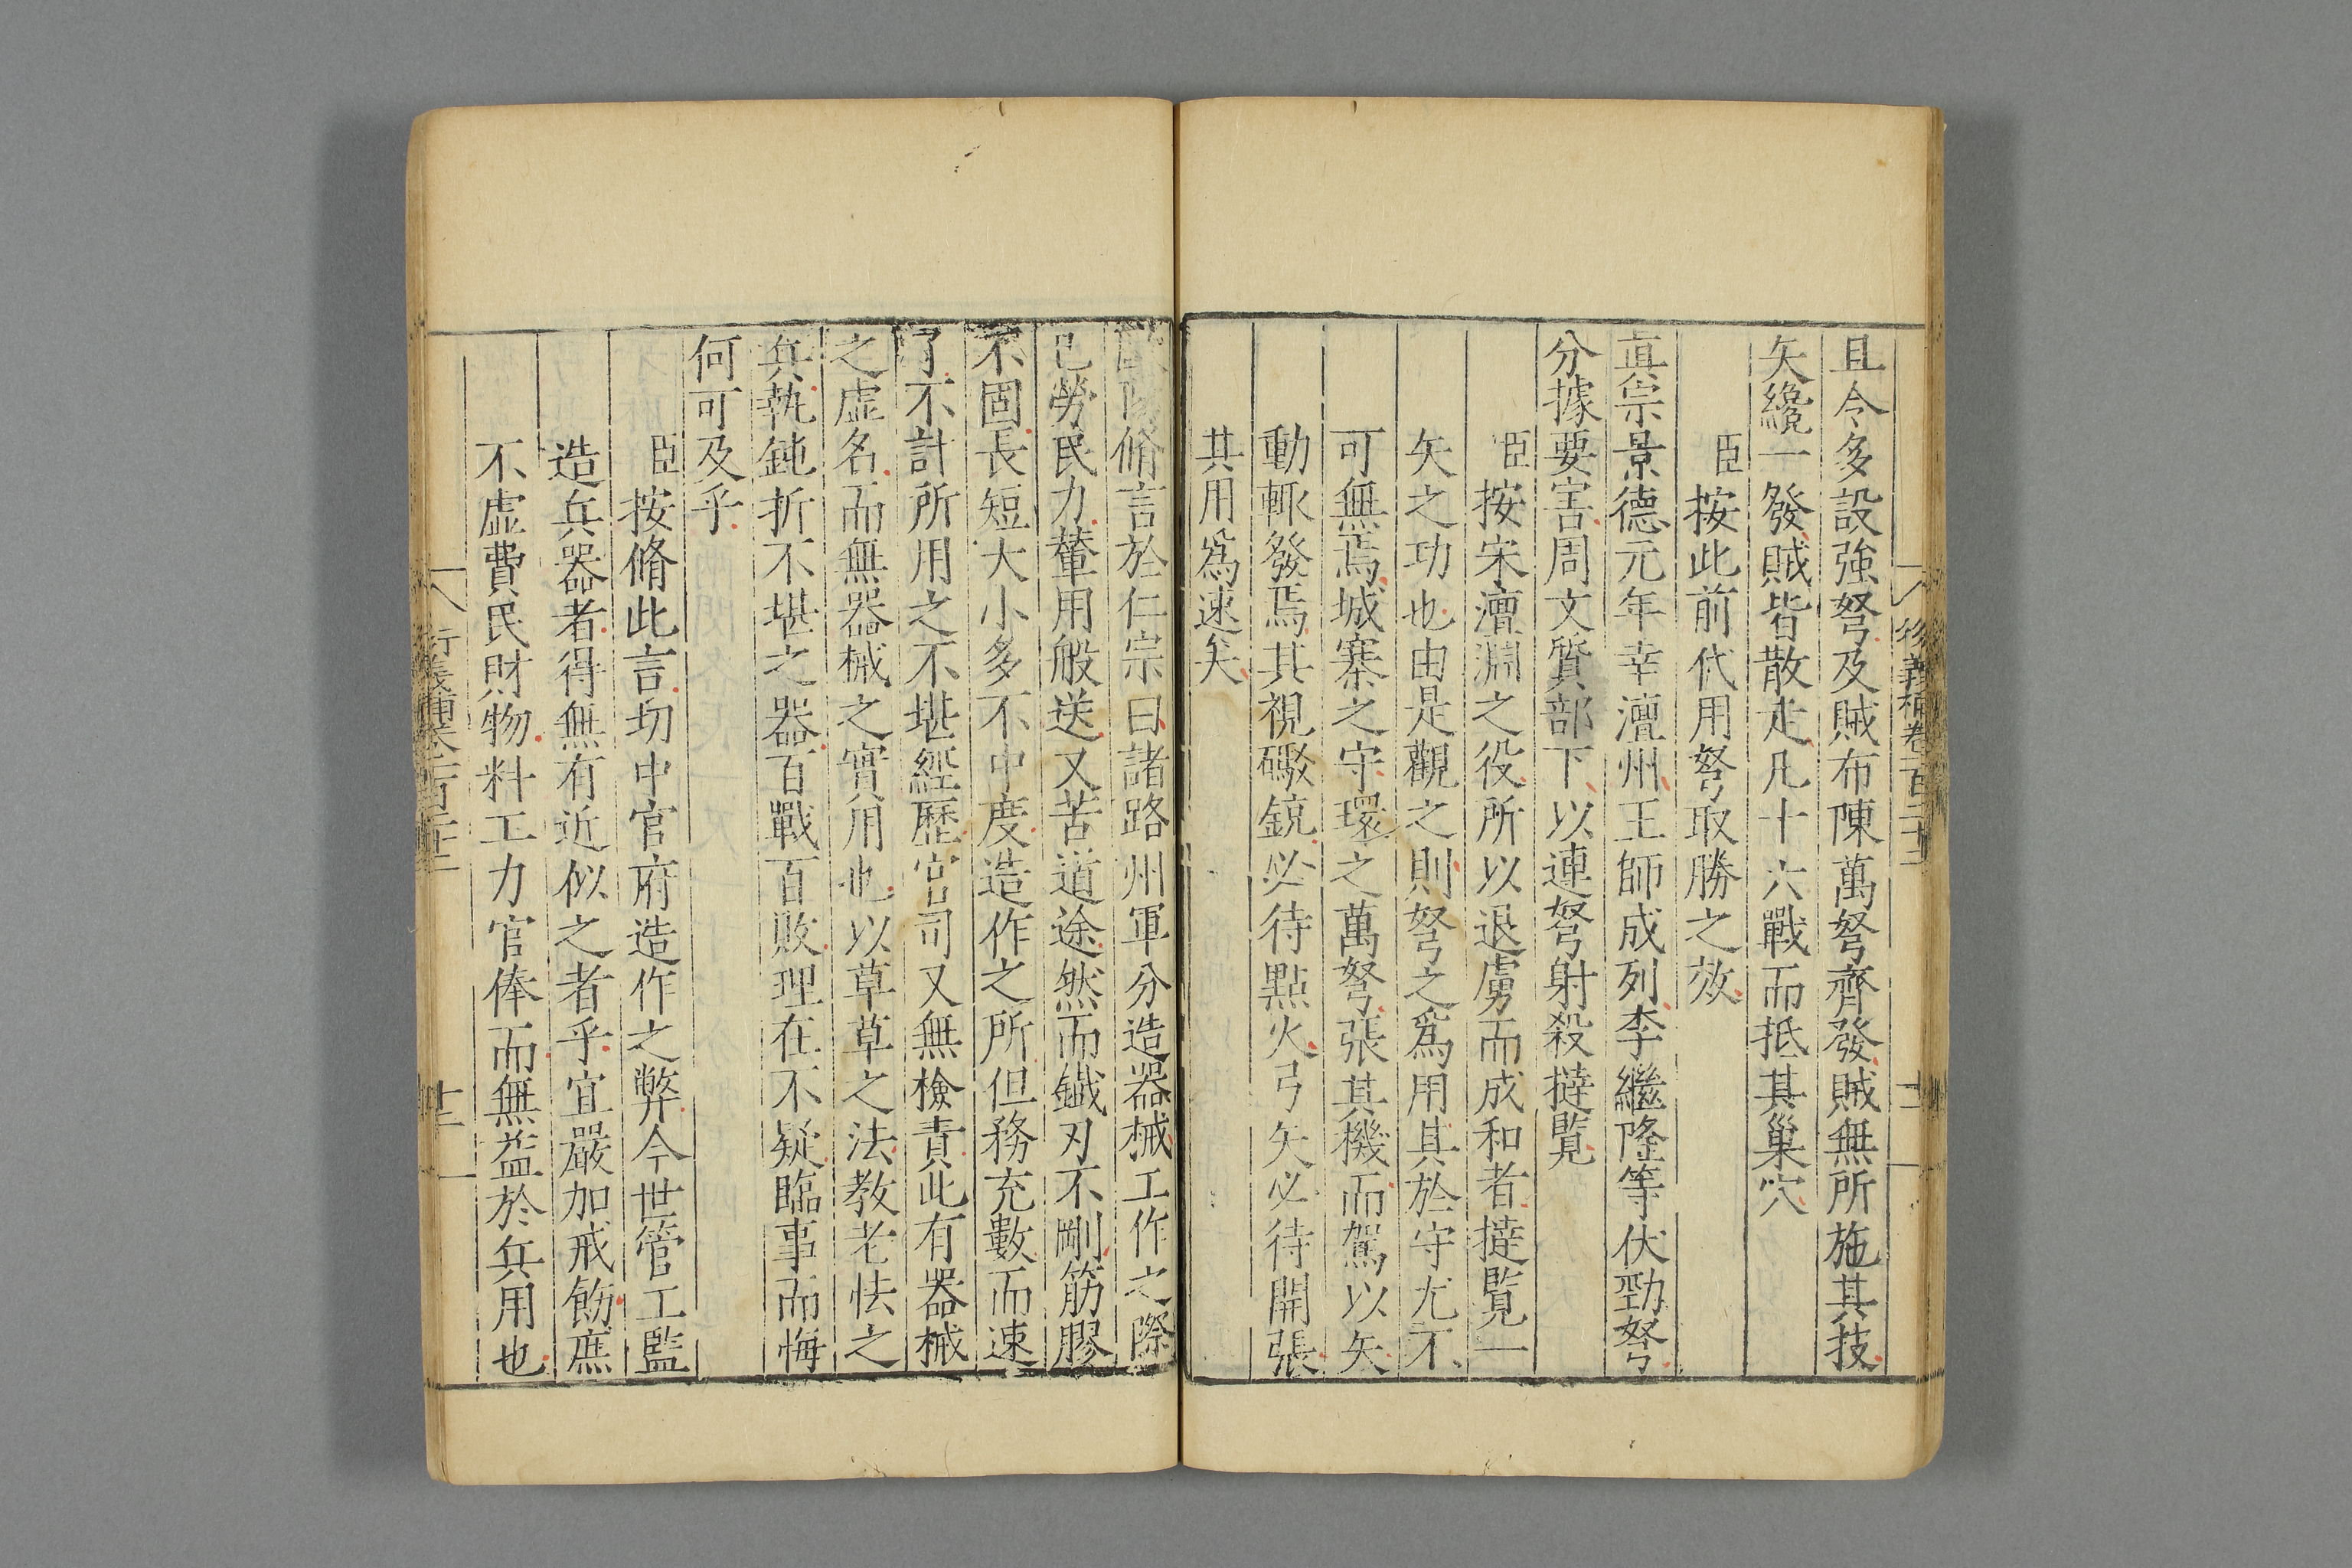 且令多設強弩及賊布陳萬弩齊發賊無所施其技
矢纔一發賊皆散走凡十六戰而抵其巢穴
臣按此前代用弩取勝之效
真宗景德元年幸澶州王師成列李繼隆等伏勁弩
分據要害周文質部下以連弩射殺撻覽
臣按宋澶淵之役所以退虜而成和者撻覽一
矢之功也由是觀之則弩之爲用其於守尤不
可無焉城寨之守環之萬弩張其機而駕以矢
動輒發焉其視礮銃必待點火弓矢必待開張
其用爲速矣
脩言於仁宗曰諸路州軍分造器械工作之際
已勞民力輦用般送又苦道途然而鐵刃不剛筋膠
不固長短大小多不中度造作之所但務充數而速
了不計所用之不堪經歷官司又無檢責此有器械
之虛名而無器械之實用也以草草之法教老怯之
兵執鈍折不堪之器百戰百敗理在不疑臨事而悔
何可及乎
臣按脩此言切中官府造作之弊今世管工監
造兵器者得無有近似之者乎宜嚴加戒飭庶
不虛費民財物料工力官俸而無益於兵用也